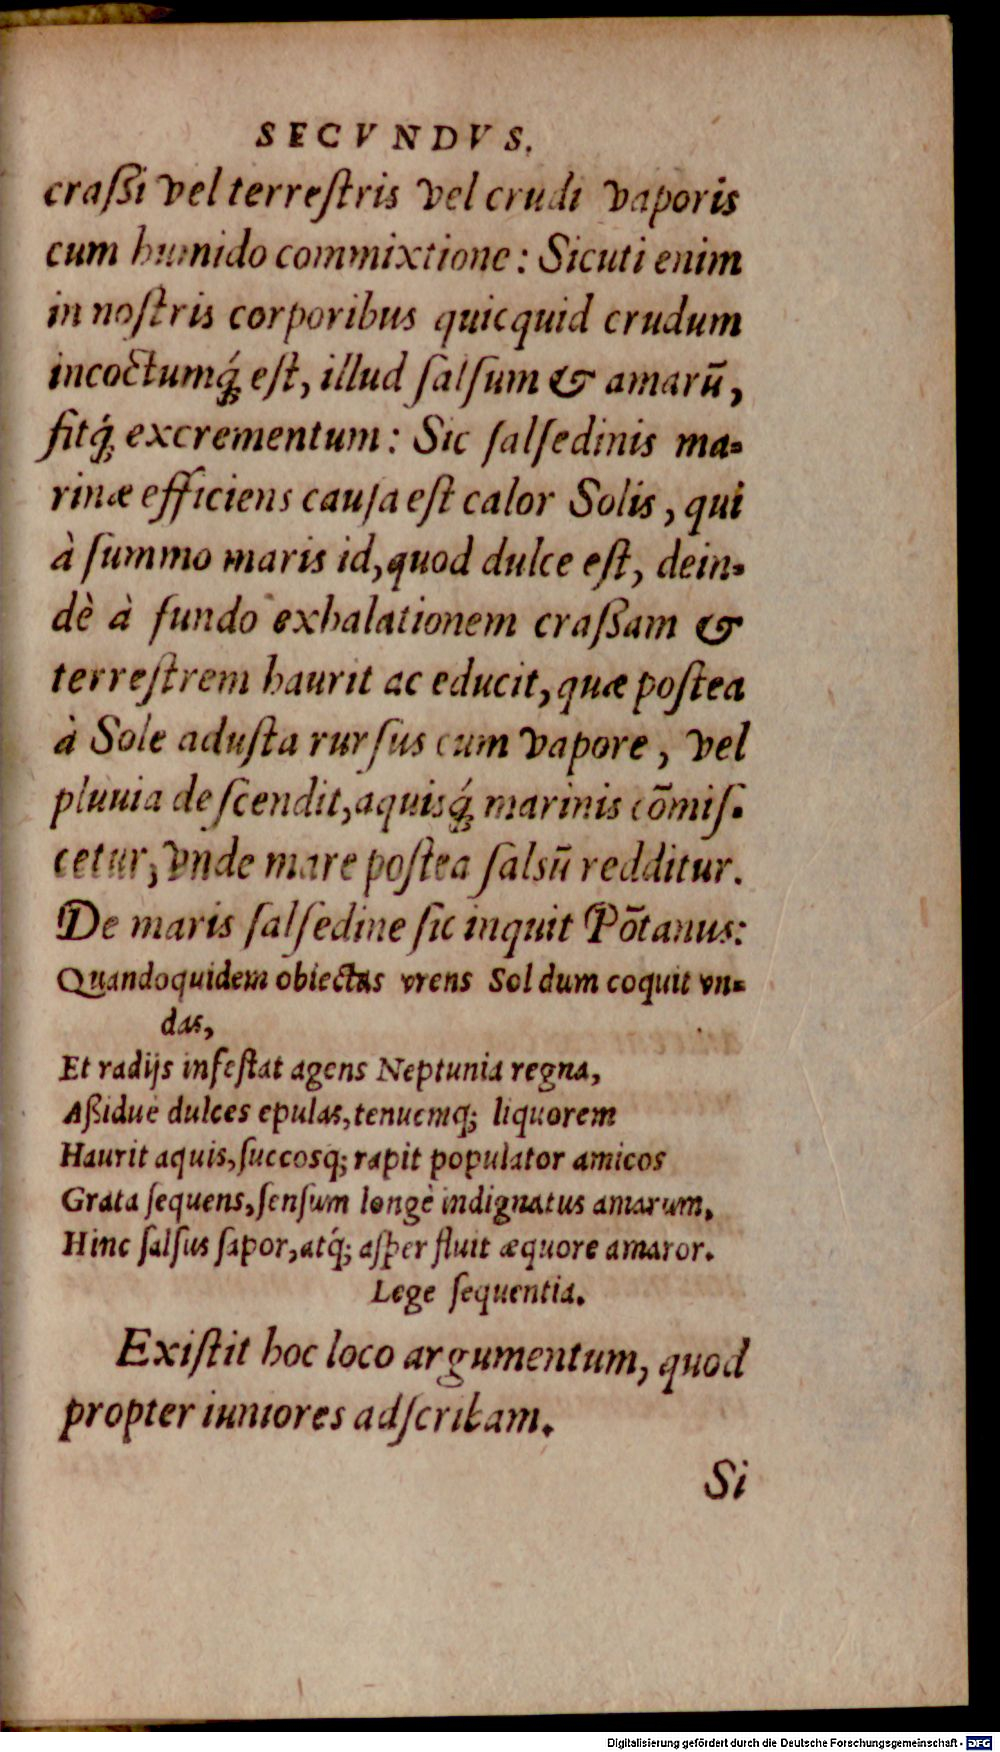 SECVNDVS.
craßi vel terreſtris vel crudi vaporis
cum humido commixtione: Sicuti enim
in noſtris corporibus quicquid crudum
incoctumq́; eſt, illud ſalſum & amarū,
fitq́; excrementum: Sic ſalſedinis ma-
rinæ efficiens cauſa eſt calor Solis, qui
à ſummo maris id, quod dulce eſt, dein-
dè à fundo exhalationem craßam &
terreſtrem haurit ac educit, quæ poſtea
à Sole aduſta rurſus cum vapore, vel
pluuia deſcendit, aquisq́; marinis cōmiſ-
cetur, vnde mare poſtea ſalsū redditur.
De maris ſalſedine ſic inquit Pōtanus:
Quandoquidem obiectas vrens Sol dum coquit vn-
das,
Et radijs infeſtat agens Neptunia regna,
Aßiduè dulces epulas, tenuemq; liquorem
Haurit aquis, ſuccosq; rapit populator amicos
Grata ſequens, ſenſum longè indignatus amarum.
Hinc ſalſus ſapor, atq́; aſper fluit æquore amaror.
Lege ſequentia.
Exiſtit hoc loco argumentum, quod
propter iuniores adſcribam.
Si
Digitalisierung gefördert durch die Deutsche Forschungsgemeinschaft - DFG